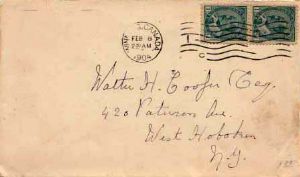 CANADA
FEB 8
1904
Walter H. Cooper Esq.
420 Paterson Ave.
West Hoboken
N.J.